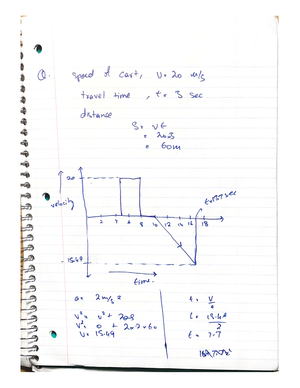 Q. Speed of cart, U = 20 m/s
travel time, t = 3 sec
distance
S = vt
= 20.3
= 60m
20
velocity
2 4 6 8 10 12 14 16 18
-15.49
time
a = 2 m/s²
v² = u² + 2as
v² = 0 + 2.2 × 60
v = 15.49
t = v/a
t = 15.49/2
t = 7.7